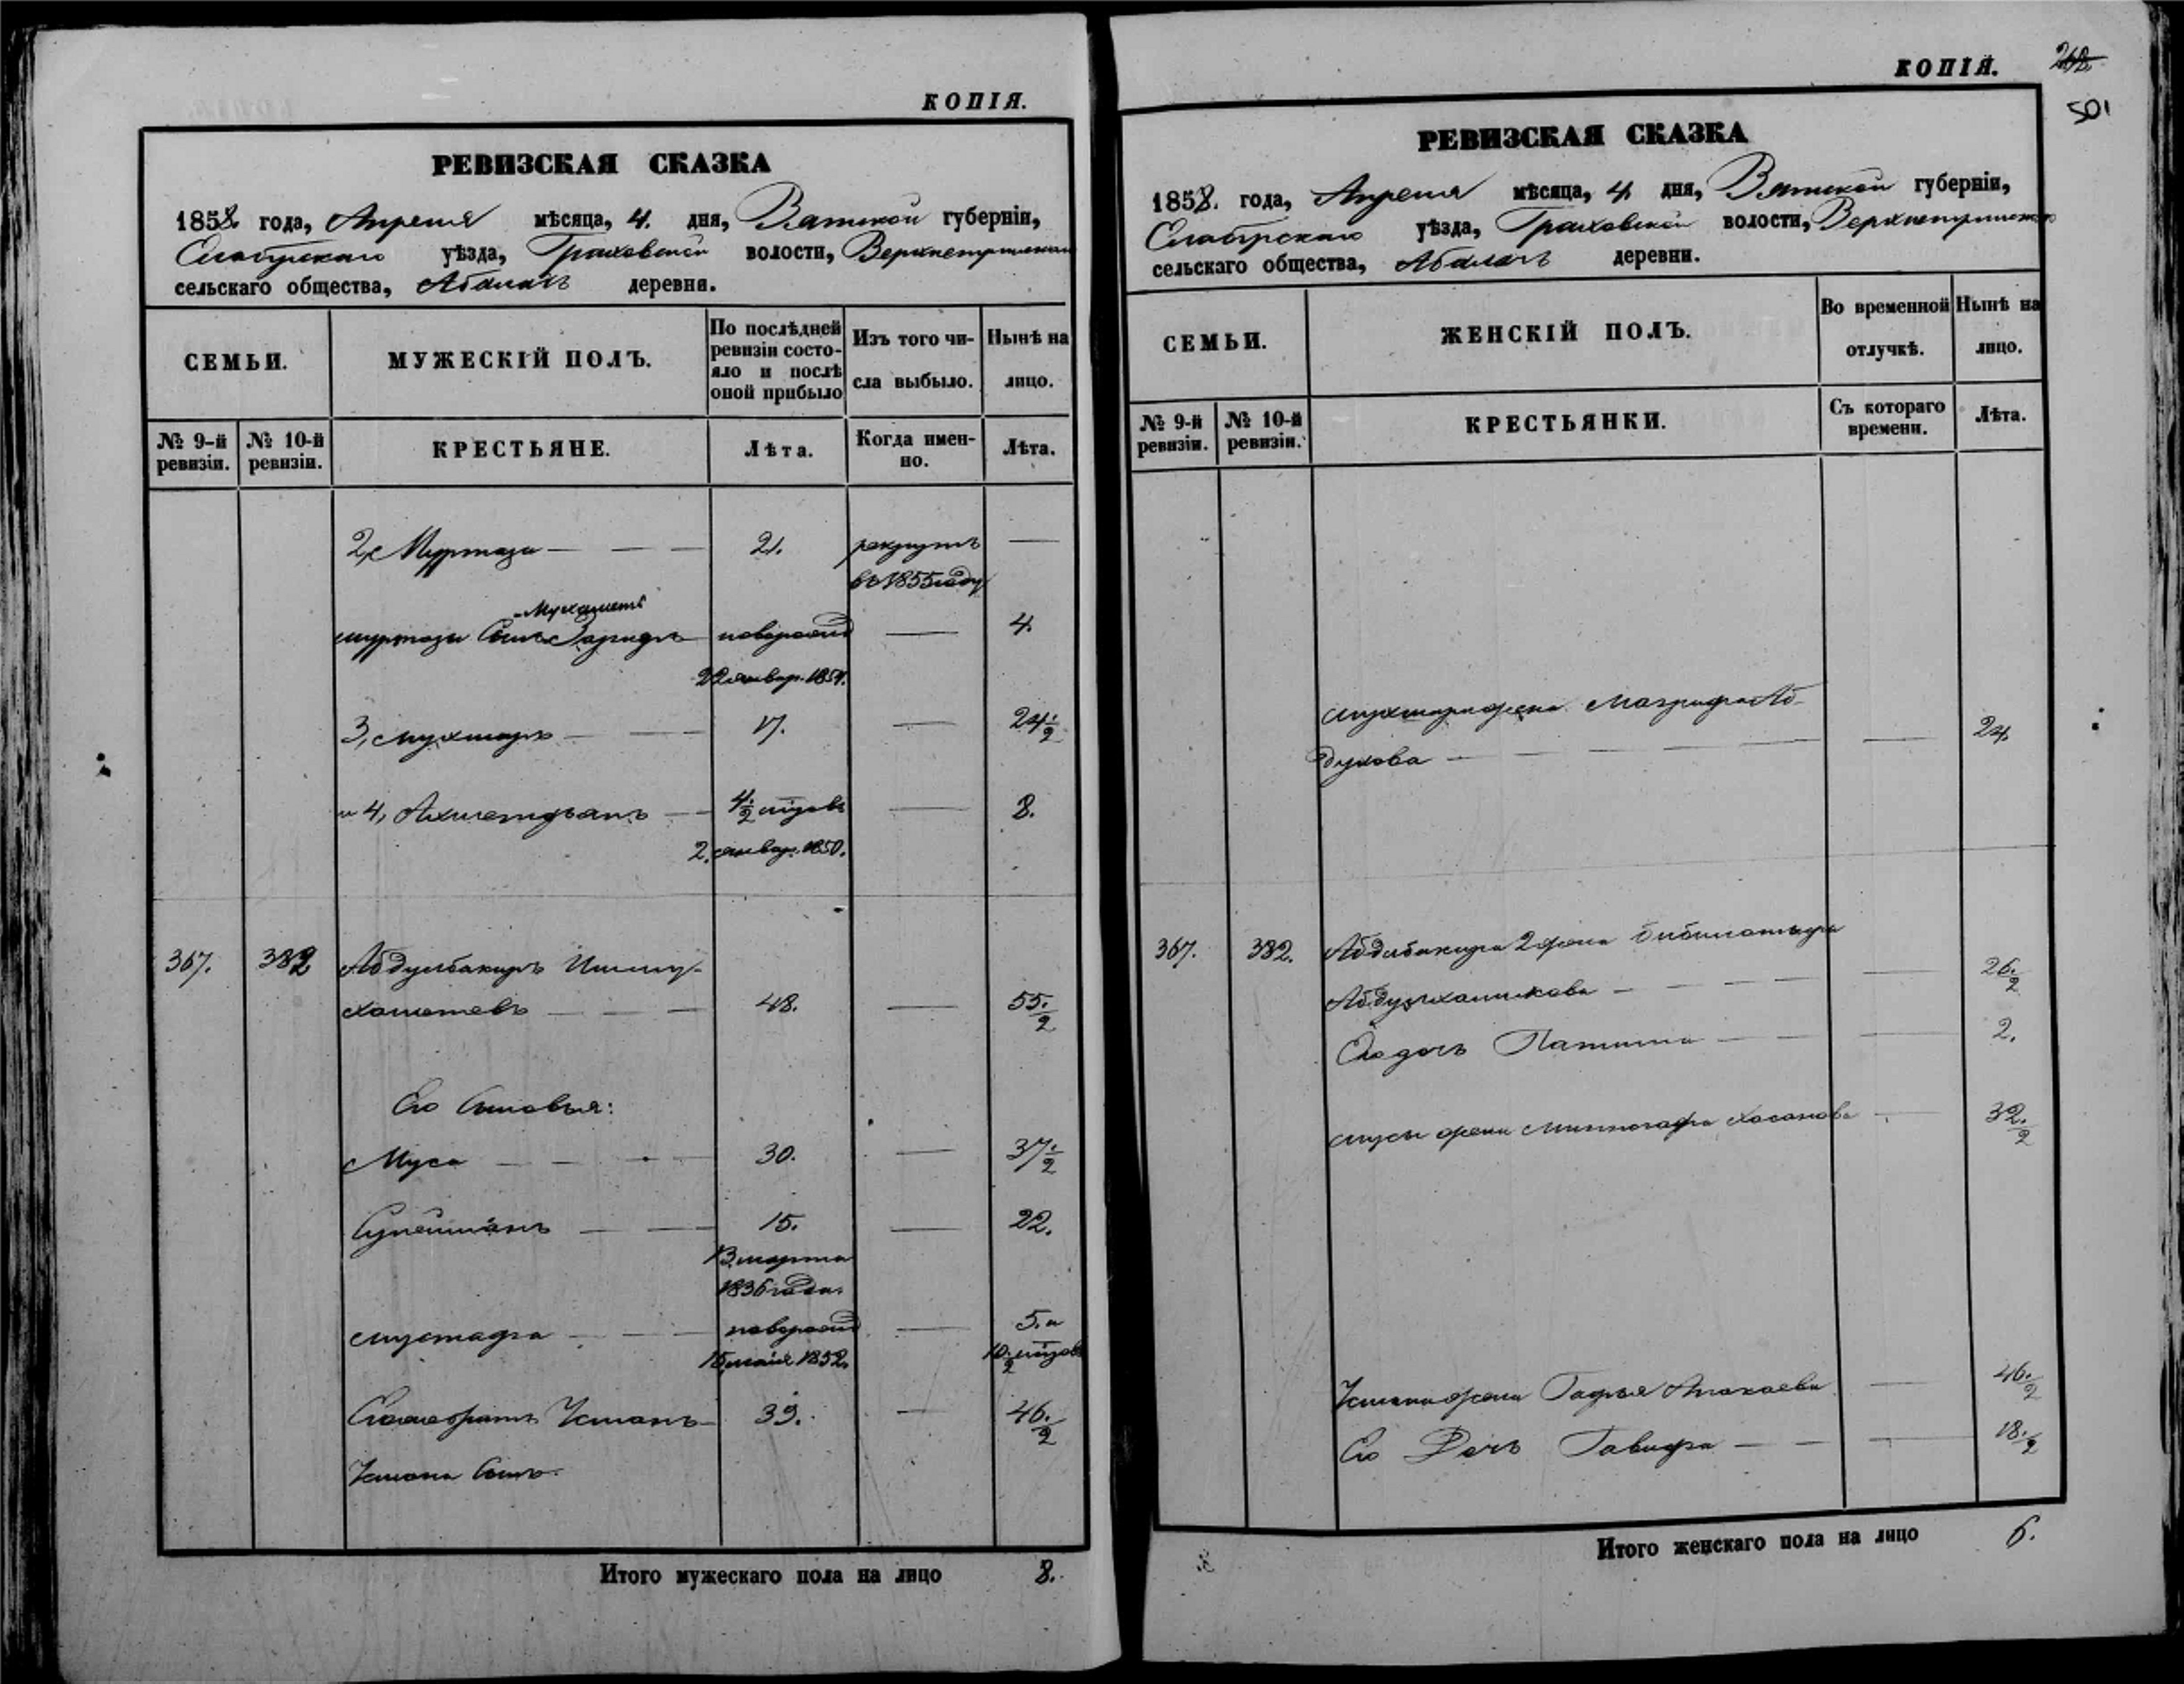 КОПІЯ.
РЕВИЗСКАЯ СКАЗКА
1858 года, Апреля мѣсяца, 4. дня, Вятской губерніи,
Елабужскаго уѣзда, Граховской волости,
сельскаго общества, деревни.
СЕМЬИ.
МУЖЕСКІЙ ПОЛЪ.
По послѣдней
ревизіи состо-
яло и послѣ
оной прибыло
Изъ того чи-
сла выбыло.
Нынѣ на
лицо.
№ 9-й
ревизіи.
№ 10-й
ревизіи.
КРЕСТЬЯНЕ.
Лѣта.
Когда имен-
но.
Лѣта.
2, Муртаза — — — 21. рекрутъ —
въ 1855 году
Мухамет
Муртазы Сынъ новорожд — 4.
22 январ. 1854.
3, Мухтаръ — — 17. — 24 1/2
и 4, Ахметжанъ — — 4 1/2 — 8.
2. январ. 1850.
367. 382 Абдулбакиръ Ишму-
хаметевъ — — — 48. — 55 1/2
Его Сыновья:
Муса — — — 30. — 37 1/2
Сулейманъ — — 15. — 22.
13 марта
1836 года.
Мустафа — — новорожд — 5. и
15 мая 1852. 10 1/2
братъ Усманъ — 39. — 46 1/2
Усмана Сынъ.
Итого мужескаго пола на лицо 8.
КОПІЯ.
268
501
РЕВИЗСКАЯ СКАЗКА
1858. года, Апреля мѣсяца, 4. дня, Вятской губерніи,
Елабужскаго уѣзда, Граховской волости,
сельскаго общества, деревни.
СЕМЬИ.
ЖЕНСКІЙ ПОЛЪ.
Во временной
отлучкѣ.
Нынѣ на
лицо.
№ 9-й
ревизіи.
№ 10-й
ревизіи.
КРЕСТЬЯНКИ.
Съ котораго
времени.
Лѣта.
Мухтара жена Магрифа Аб-
дулова — — — — — 24
367. 382. Абдлбакира 2 жена
— — — — 26 1/2
Его дочь — — — 2.
Мусы жена Хасанова — 32 1/2
Усмана жена — 46 1/2
Его Дочь — — — 18 1/2
Итого женскаго пола на лицо 6.